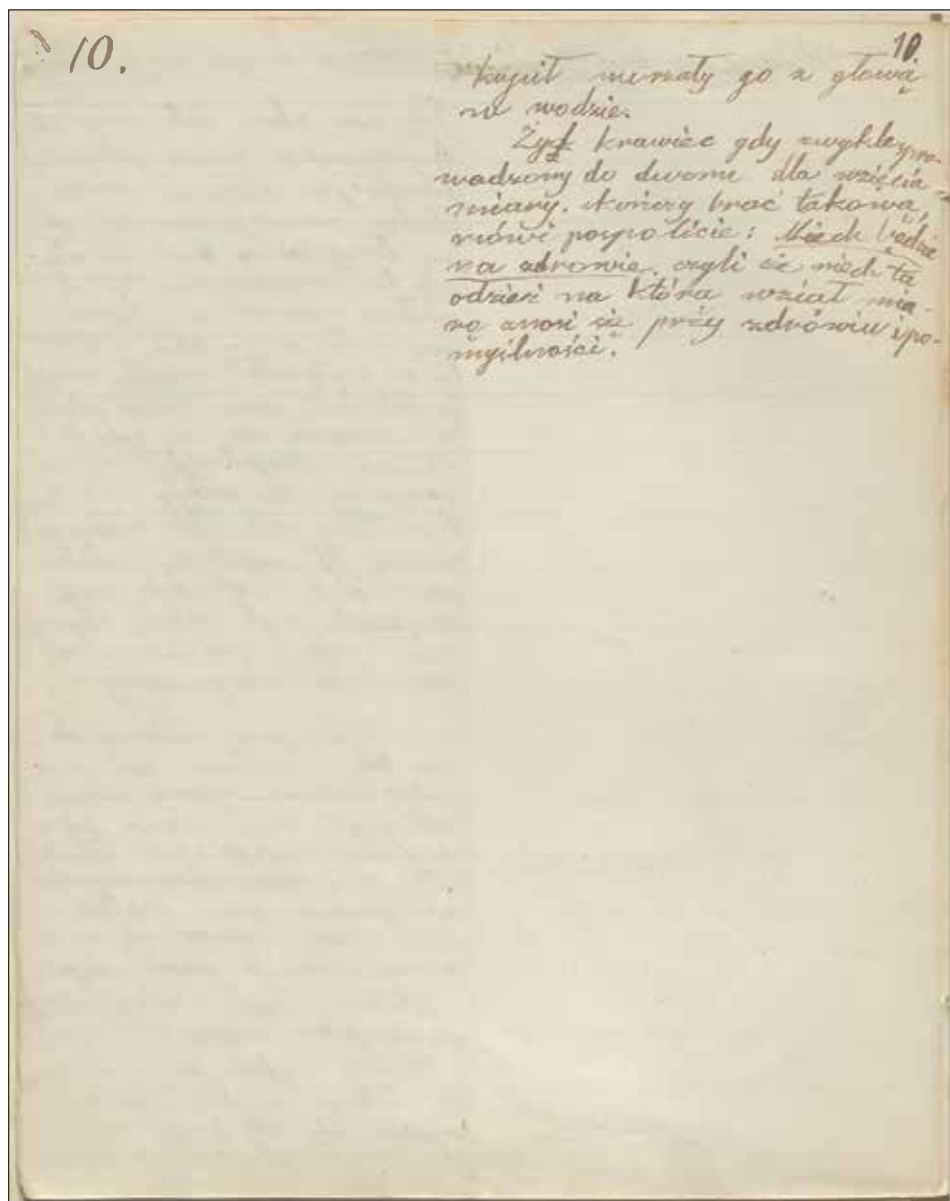 10.
10.
kąpił nurzały go z głową
w wodzie.
Żyd krawiec gdy zwykle wpro-
wadzony do dworu dla wzięcia
miary. skończy brać takową,
mówi pospolicie: Niech będzie
na zdrowie. czyli że niech ta
odzież na którą wziął mia-
rę znosi się przy zdrowiu i po-
myślności.